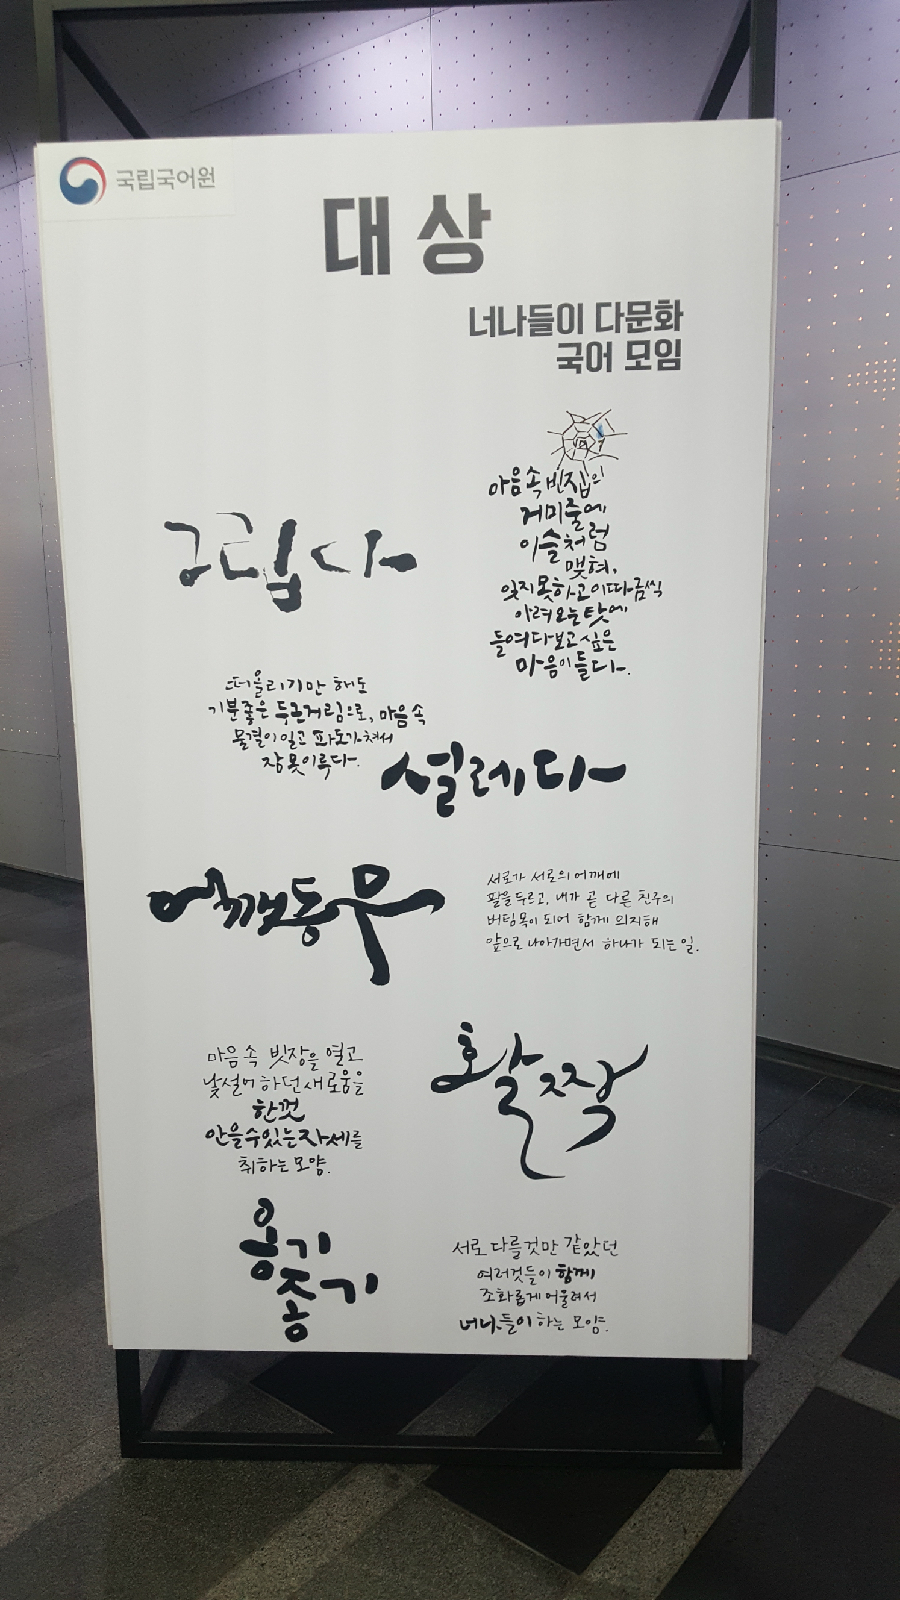 국립국어원
대상
너나들이 다문화
국어 모임
그립다
마음속 빈집의
거미줄에
이슬처럼
맺혀,
잊지 못하고 이따금씩
아려오는 탓에
들여다보고 싶은
마음이 들다.
떠올리기만 해도
기분좋은 두근거림으로, 마음속
물결이 일고 파도가 쳐서
잠 못 이루다.
설레다
어깨동무
서로가 서로의 어깨에
팔을 두르고, 내가 곧 다른 친구의
버팀목이 되어 함께 의지해
앞으로 나아가면서 하나가 되는 일.
활짝
마음속 빗장을 열고
낯설어 하던 새로움을
한껏
안을 수 있는 자세를
취하는 모양.
옹기
종기
서로 다를것만 같았던
여러것들이 함께
조화롭게 어울려서
너나들이 하는 모양.